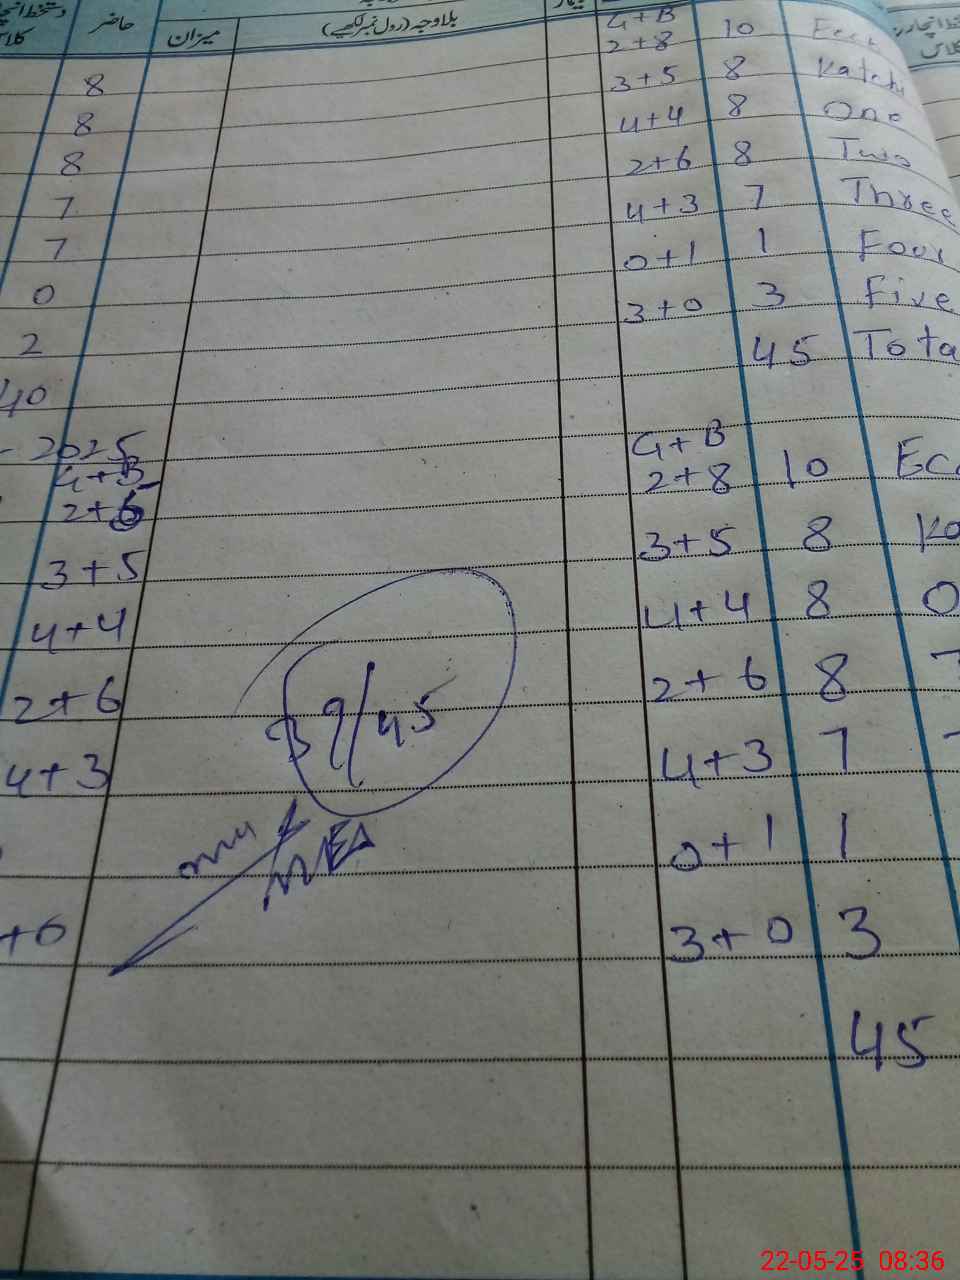 حاضر
میزان
بلاوجہ (رول نمبر لکھیے)
کلاس
G+B
8 2+8 10
8 3+5 8 Katchi
8 4+4 8 One
7 2+6 8 Two
7 4+3 7 Three
0 0+1 1 Four
2 3+0 3 Five
40 45 Tota
- 2025
G+B G+B
2+6 2+8 10 Ec
3+5 3+5 8 Ka
4+4 4+4 8 O
2+6 2+6 8
4+3 4+3 7
0+1 1
+0 3+0 3
45
39/45
MEA
22-05-25 08:36